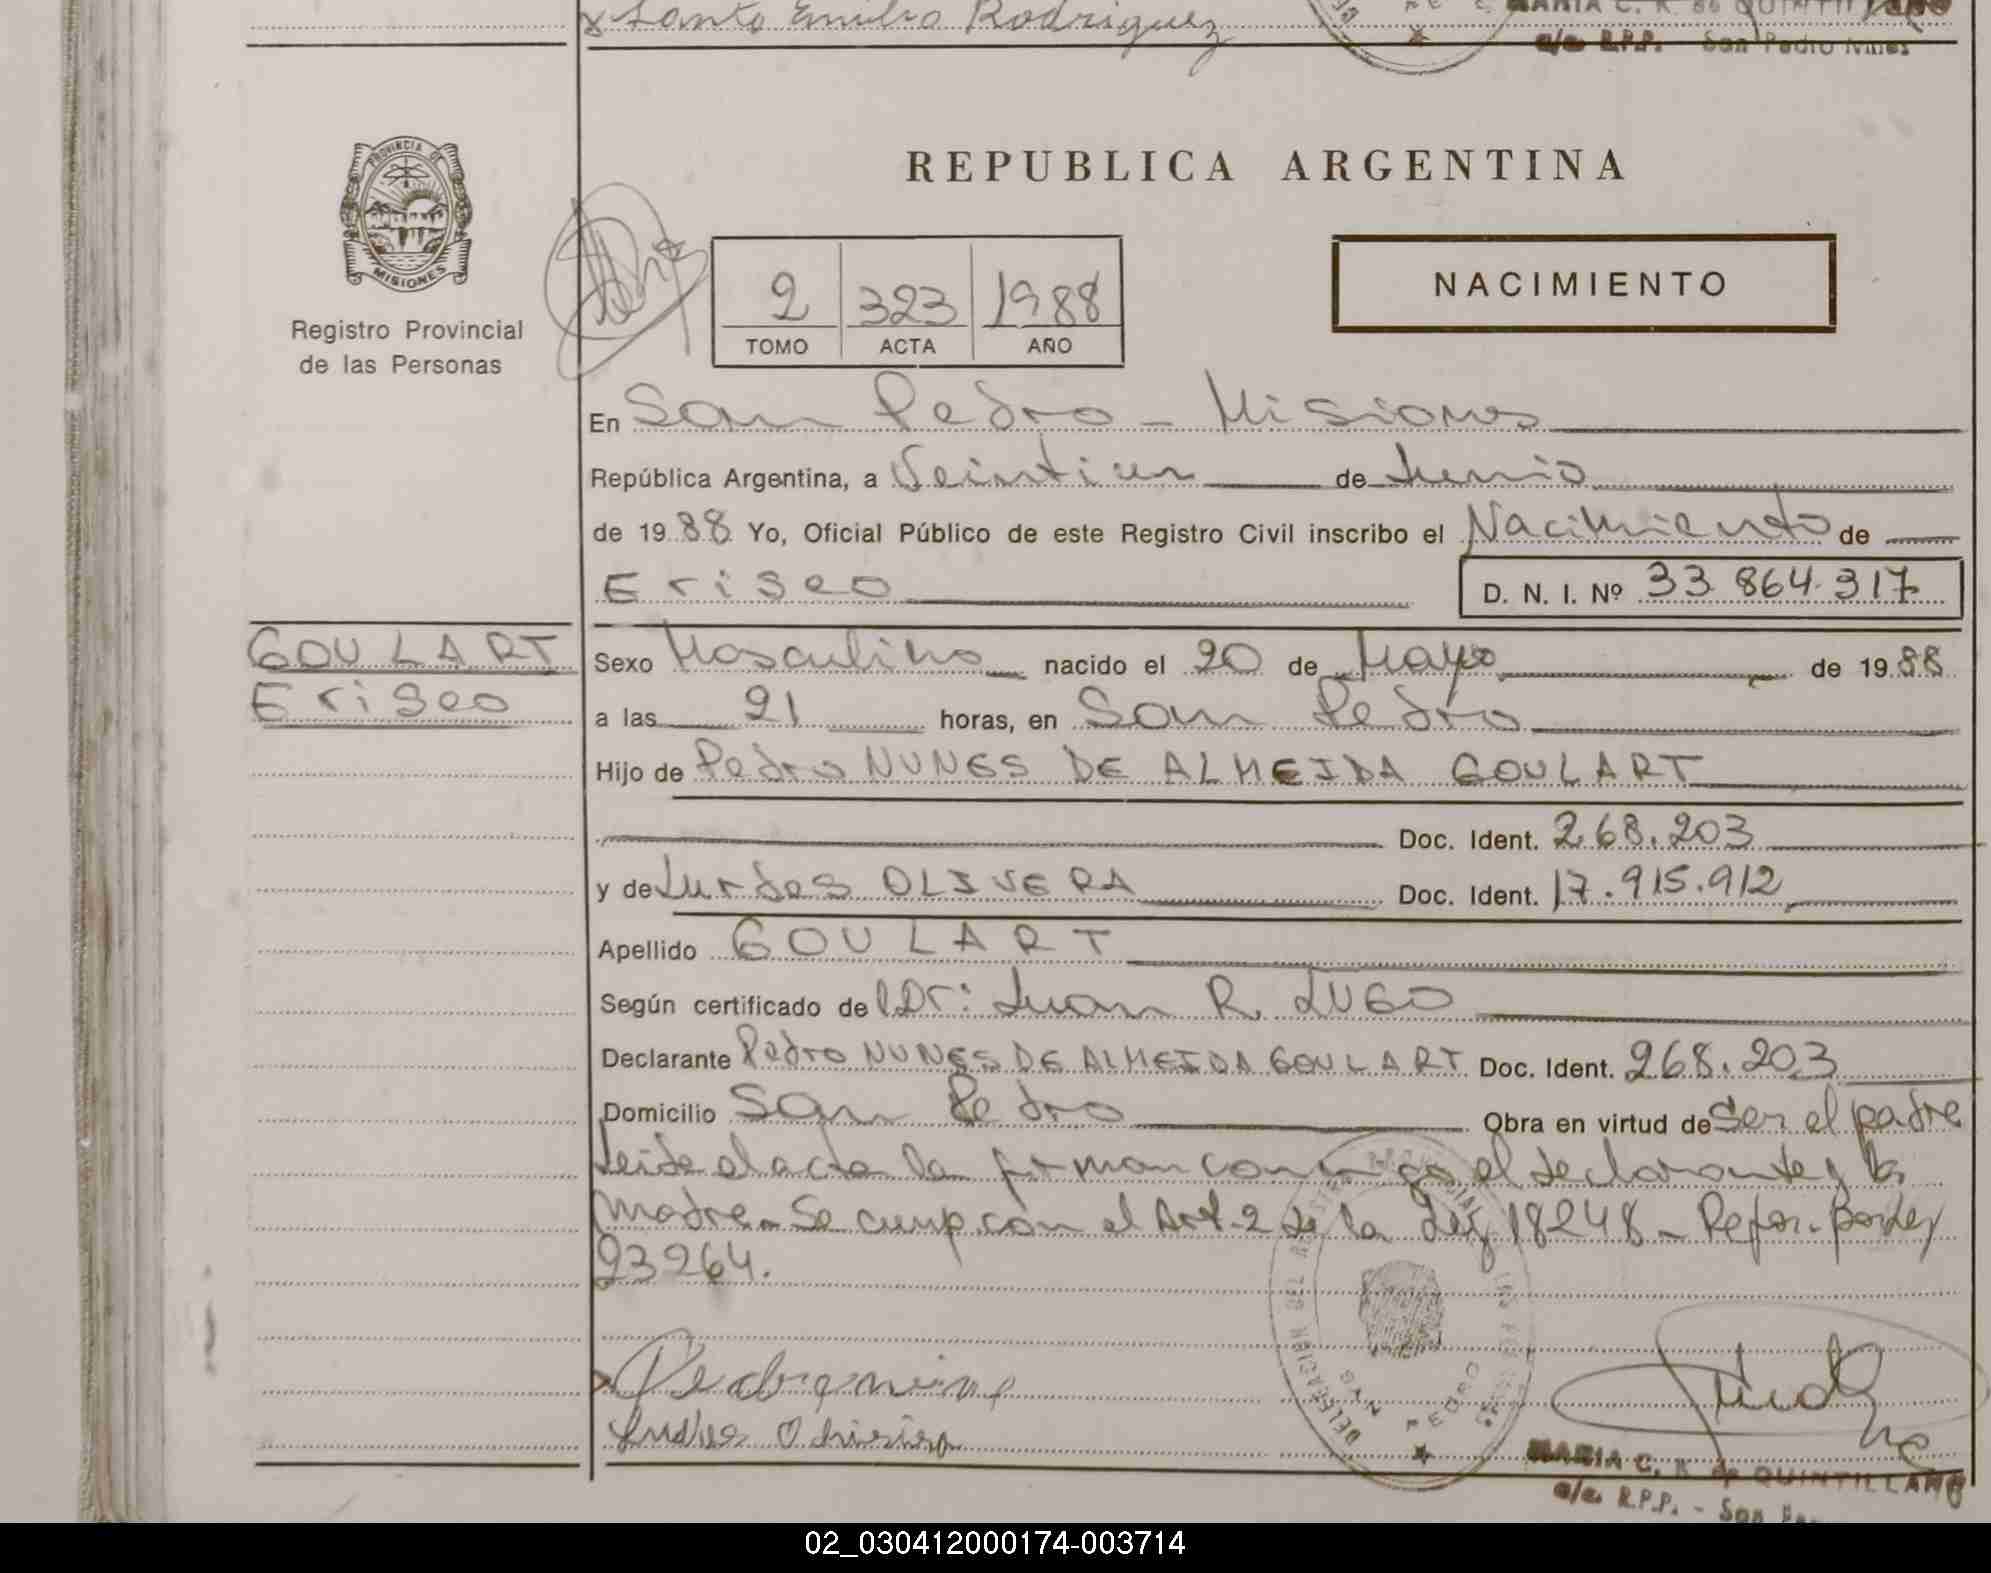 x Santo Emilio Rodriguez
MARIA C. K. de QUINTILLANO
a/c R.P.P. San Pedro Mnes
PROVINCIA DE
MISIONES
Registro Provincial
de las Personas
REPUBLICA ARGENTINA
2 323 1988
TOMO ACTA AÑO
NACIMIENTO
En San Pedro - Misiones
República Argentina, a Veintiun de Junio
de 1988 Yo, Oficial Público de este Registro Civil inscribo el Nacimiento de
Eriseo D. N. I. Nº 33.864.317
GOULART
Eriseo
Sexo Masculino nacido el 20 de Mayo de 1988
a las 21 horas, en San Pedro
Hijo de Pedro NUNES DE ALMEIDA GOULART
Doc. Ident. 268.203
y de Lurdes OLIVERA Doc. Ident. 17.915.912
Apellido GOULART
Según certificado de Dr: Juan R. LUGO
Declarante Pedro NUNES DE ALMEIDA GOULART Doc. Ident. 268.203
Domicilio San Pedro Obra en virtud de Ser el padre
Leida el acta la firman conmigo el declarante y la
Madre. Se cump. con el Art. 2 de la Ley 18248 - Refor. por ley
23264.
DELEGACION DEL REGISTRO PROVINCIAL DE LAS PERSONAS
SAN PEDRO
MARIA C. K. de QUINTILLANO
a/c R.P.P. - San
02_030412000174-003714